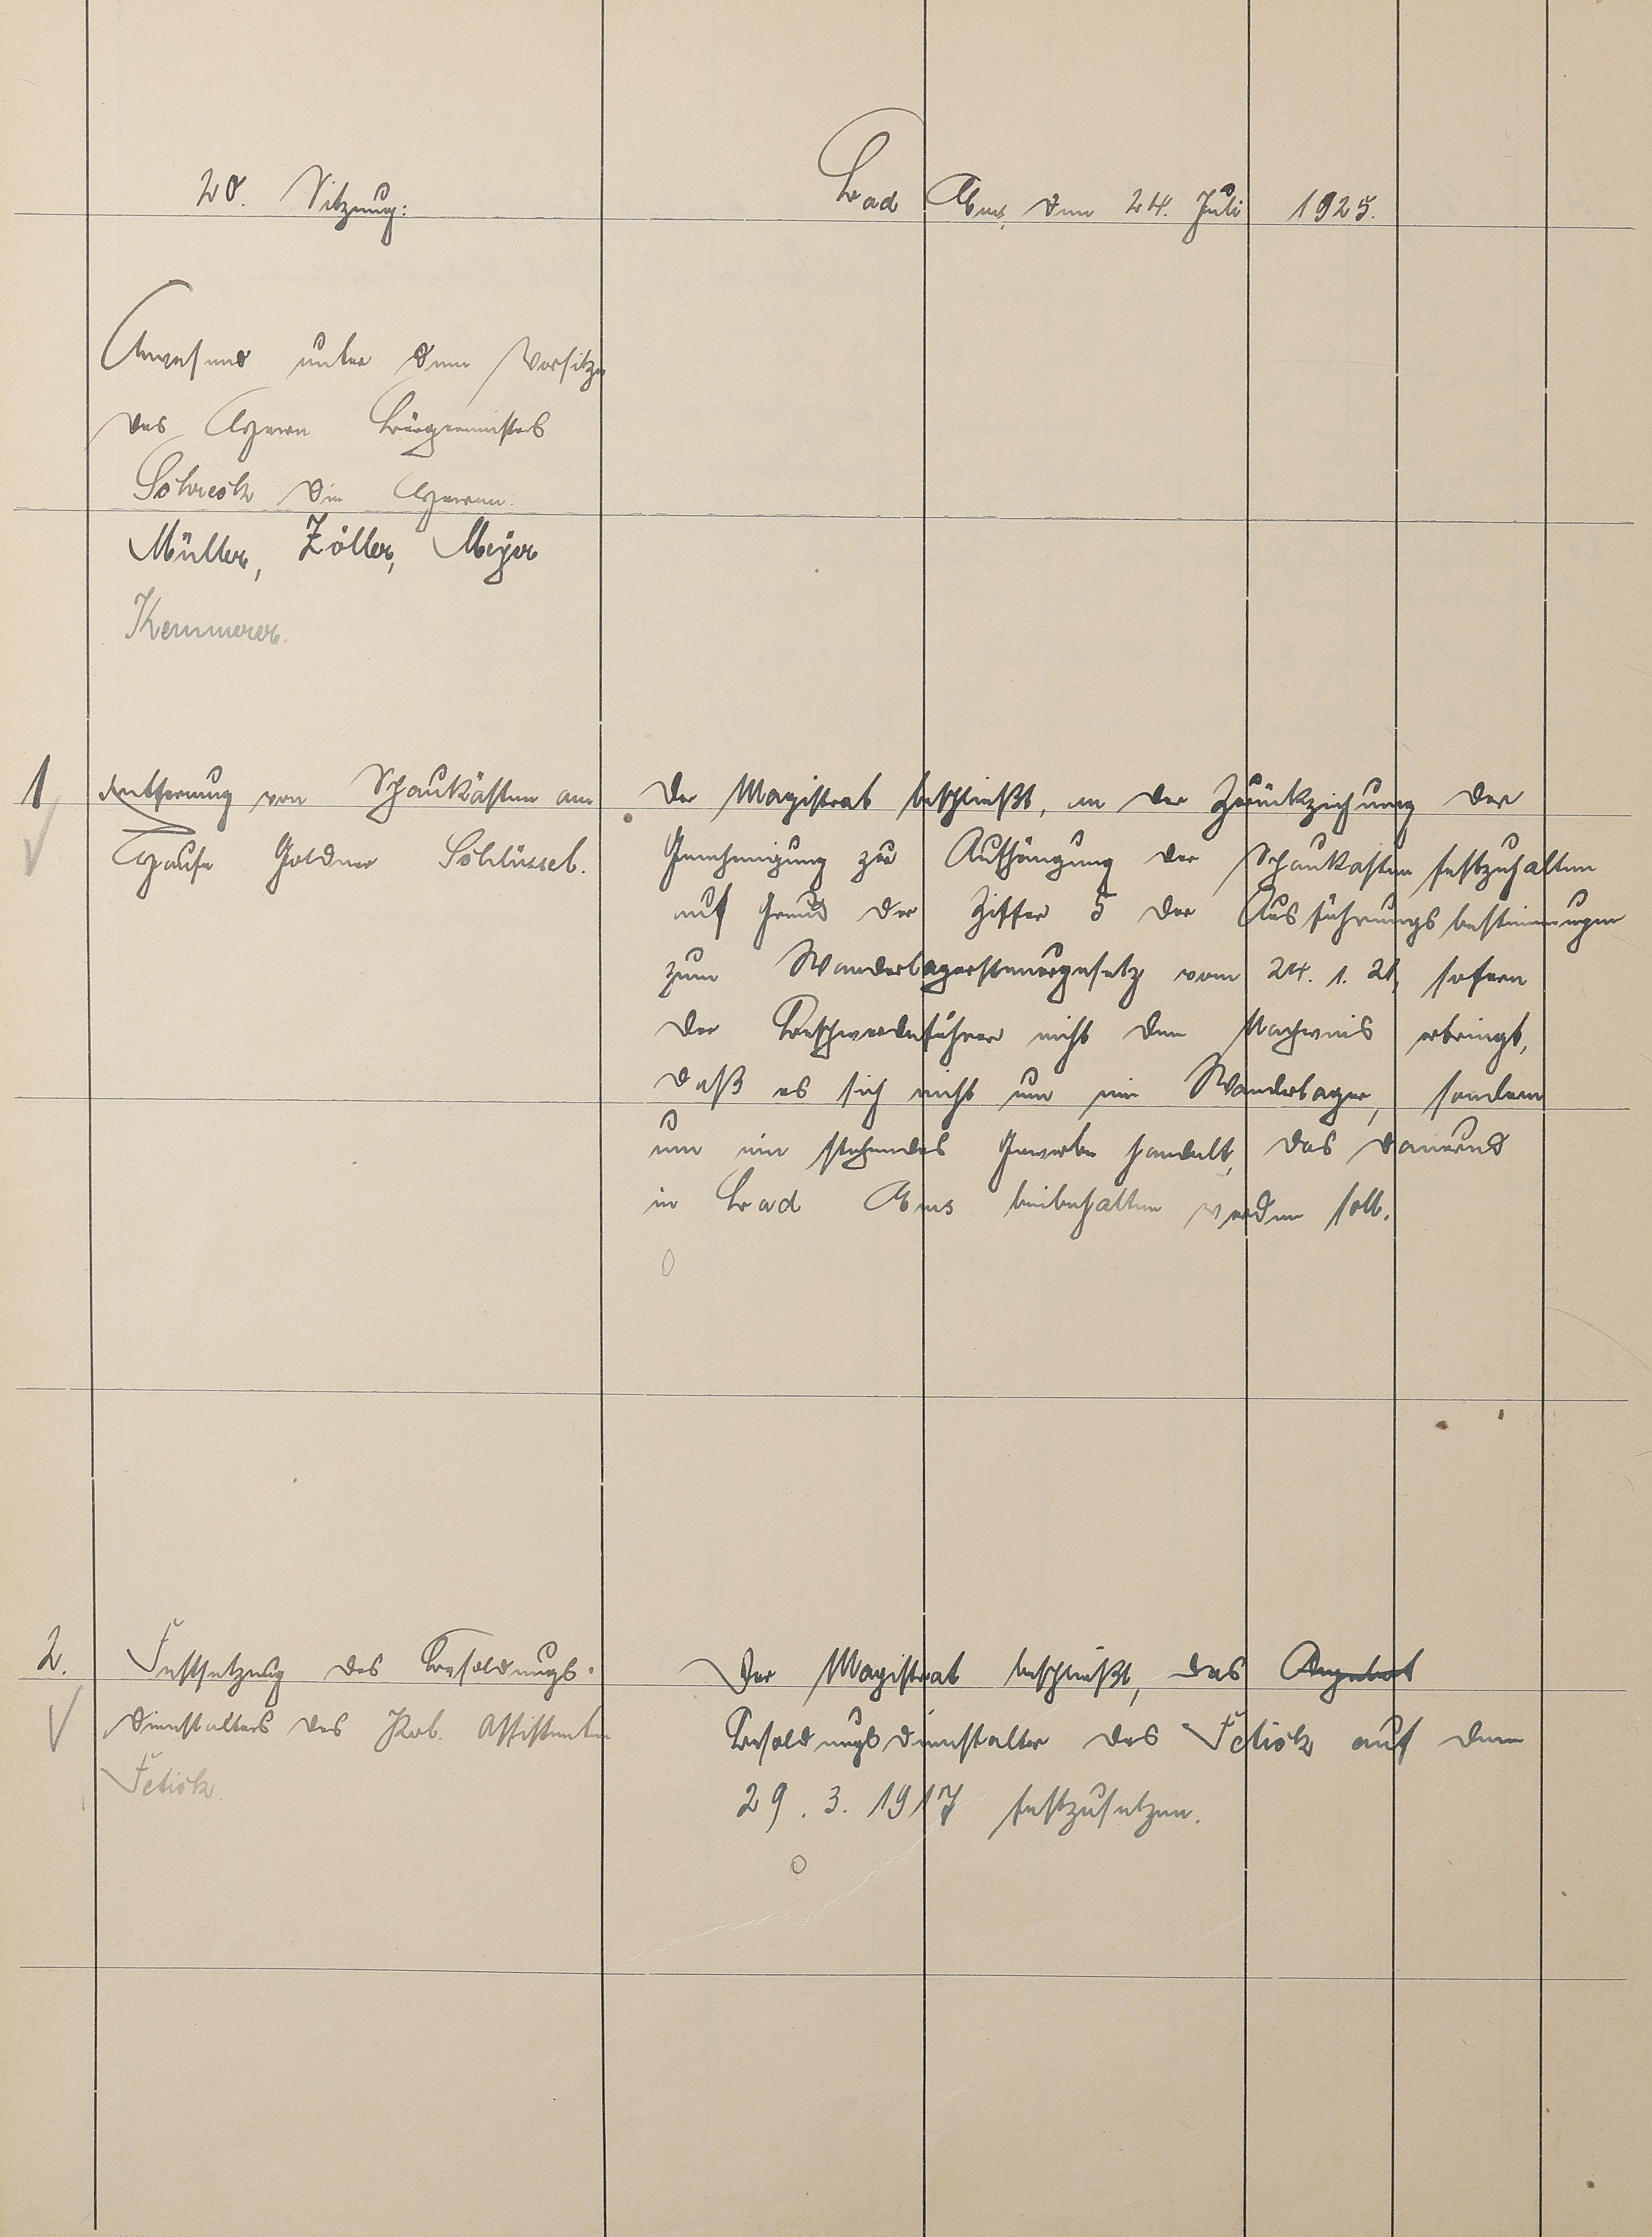 20. Sitzung:
Bad Ems, den 24. Juli 1925.
Anwesend unter dem Vorsitze
des Herrn Bürgermeisters
Schreck die Herren:
Müller, Zöller, Meyer
Kemmerer.
1
Entfernung von Schaukästen am
Hause Goldner Schlüssel.
Der Magistrat beschließt, an der Zurückziehung der
Genehmigung zur Aufhängung der Schaukasten festzuhalten
auf Grund der Ziffer 5 der Ausführungsbestimmungen
zum Wanderlagersteuergesetz vom 24. 1. 21, sofern
der Beschwerdeführer nicht den Nachweis erbringt,
daß es sich nicht um ein Wanderlager, sondern
um ein stehendes Gewerbe handelt, das dauernd
in Bad Ems beibehalten werden soll.
2.
Festsetzung des Besoldungs-
dienstalters des Pol. Assistenten
Fetick.
Der Magistrat beschließt, das Angebot
Besoldungsdienstalter des Fetick auf den
29. 3. 1917 festzusetzen.